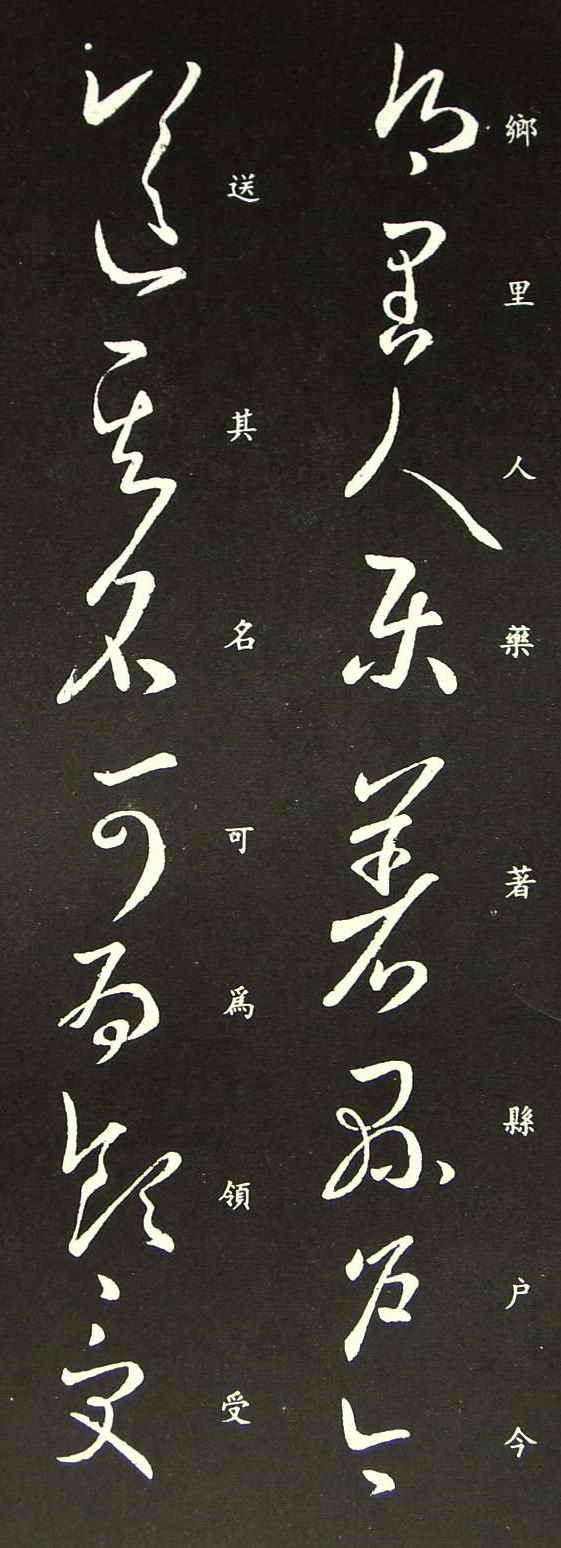 鄉里人藥著縣户今
送其名可爲領受